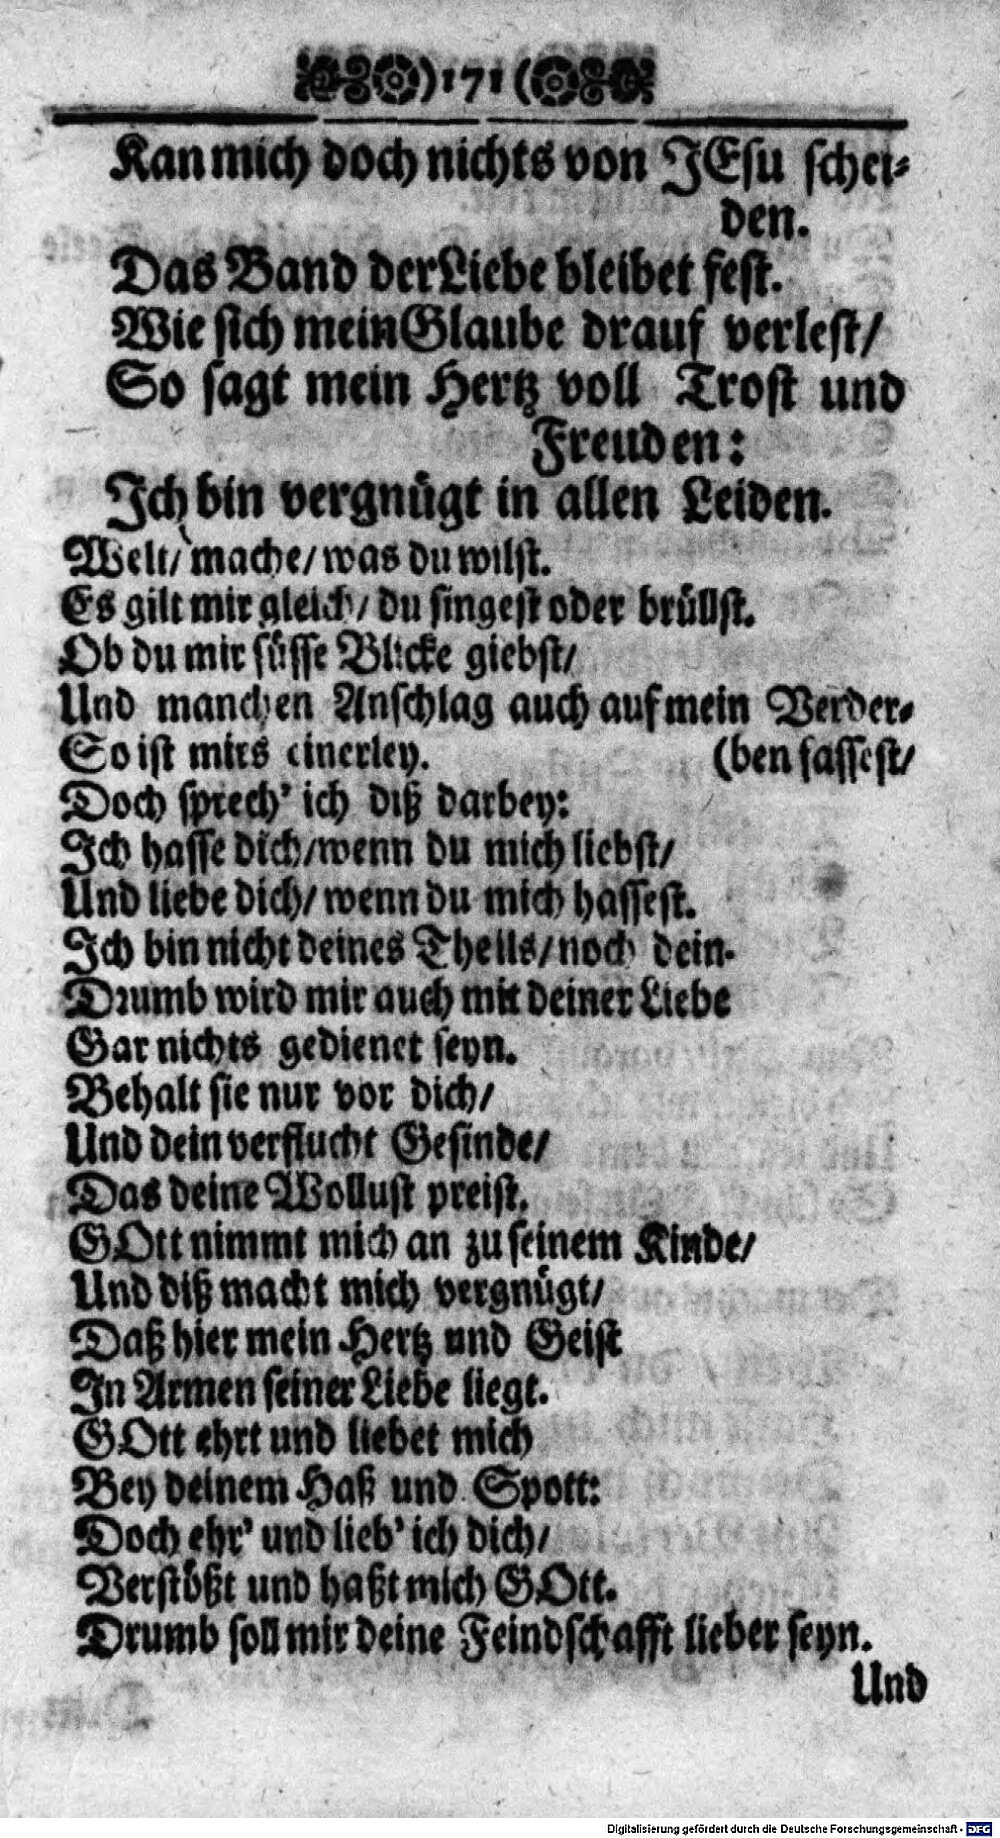 )171(
Kan mich doch nichts von JEsu schei-
den.
Das Band der Liebe bleibet fest.
Wie sich mein Glaube drauf verlest/
So sagt mein Hertz voll Trost und
Freuden:
Ich bin vergnügt in allen Leiden.
Welt/ mache/ was du wilst.
Es gilt mir gleich/ du singest oder brüllst.
Ob du mir süsse Blicke giebst/
Und manchen Anschlag auch auf mein Verder-
So ist mirs einerley. (ben fassest/
Doch sprech' ich diß darbey:
Ich hasse dich/ wenn du mich liebst/
Und liebe dich/ wenn du mich hassest.
Ich bin nicht deines Theils/ noch dein.
Drumb wird mir auch mit deiner Liebe
Gar nichts gedienet seyn.
Behalt sie nur vor dich/
Und dein verflucht Gesinde/
Das deine Wollust preist.
GOtt nimmt mich an zu seinem Kinde/
Und diß macht mich vergnügt/
Daß hier mein Hertz und Geist
In Armen seiner Liebe liegt.
GOtt ehrt und liebet mich
Bey deinem Haß und Spott:
Doch ehr' und lieb' ich dich/
Verstößt und haßt mich GOtt.
Drumb soll mir deine Feindschafft lieber seyn.
Und
Digitalisierung gefördert durch die Deutsche Forschungsgemeinschaft - DFG